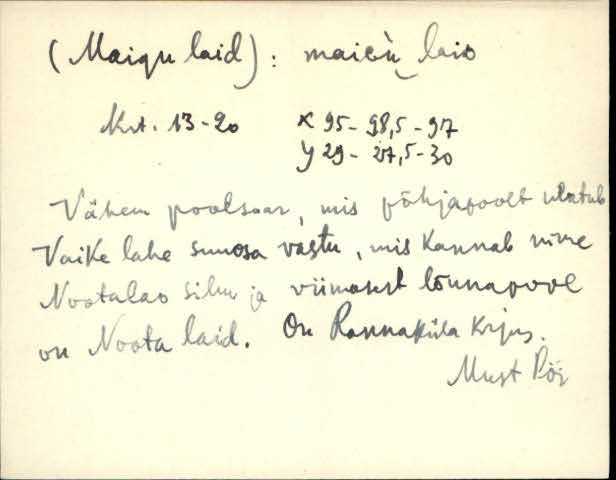 (Maigu laid): maiGù laiD
Krt. 13-20 X 95-98,5-97
Y 29-27,5-30
Vähem poolsaar, mis põhjapoolt ulatub
Vaike lahe suuosa vastu, mis kannab nime
Nootalao silm ja viimasest lõunapool
on Noota laid. On Rannaküla krjus.
Must